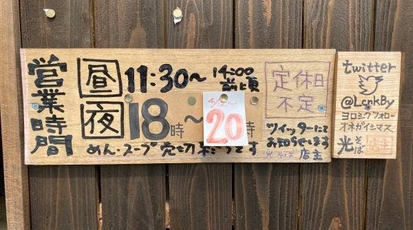 営業時間
昼 11:30～14:00前頃
夜 18時～20時
めん・スープ売切
定休日
不定
ツイッターにて
お知らせします
店主
twitter
@LcnkBy
ヨロシクフォロー
オネガイシマス
光
そば